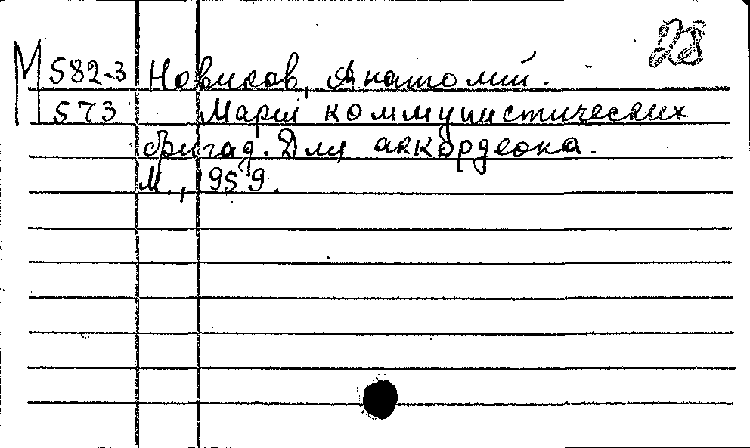 28
М 582-3 Новиков, Анатолий.
573 Марш коммунистических
бригад. Для аккордеона.
М., 1959.